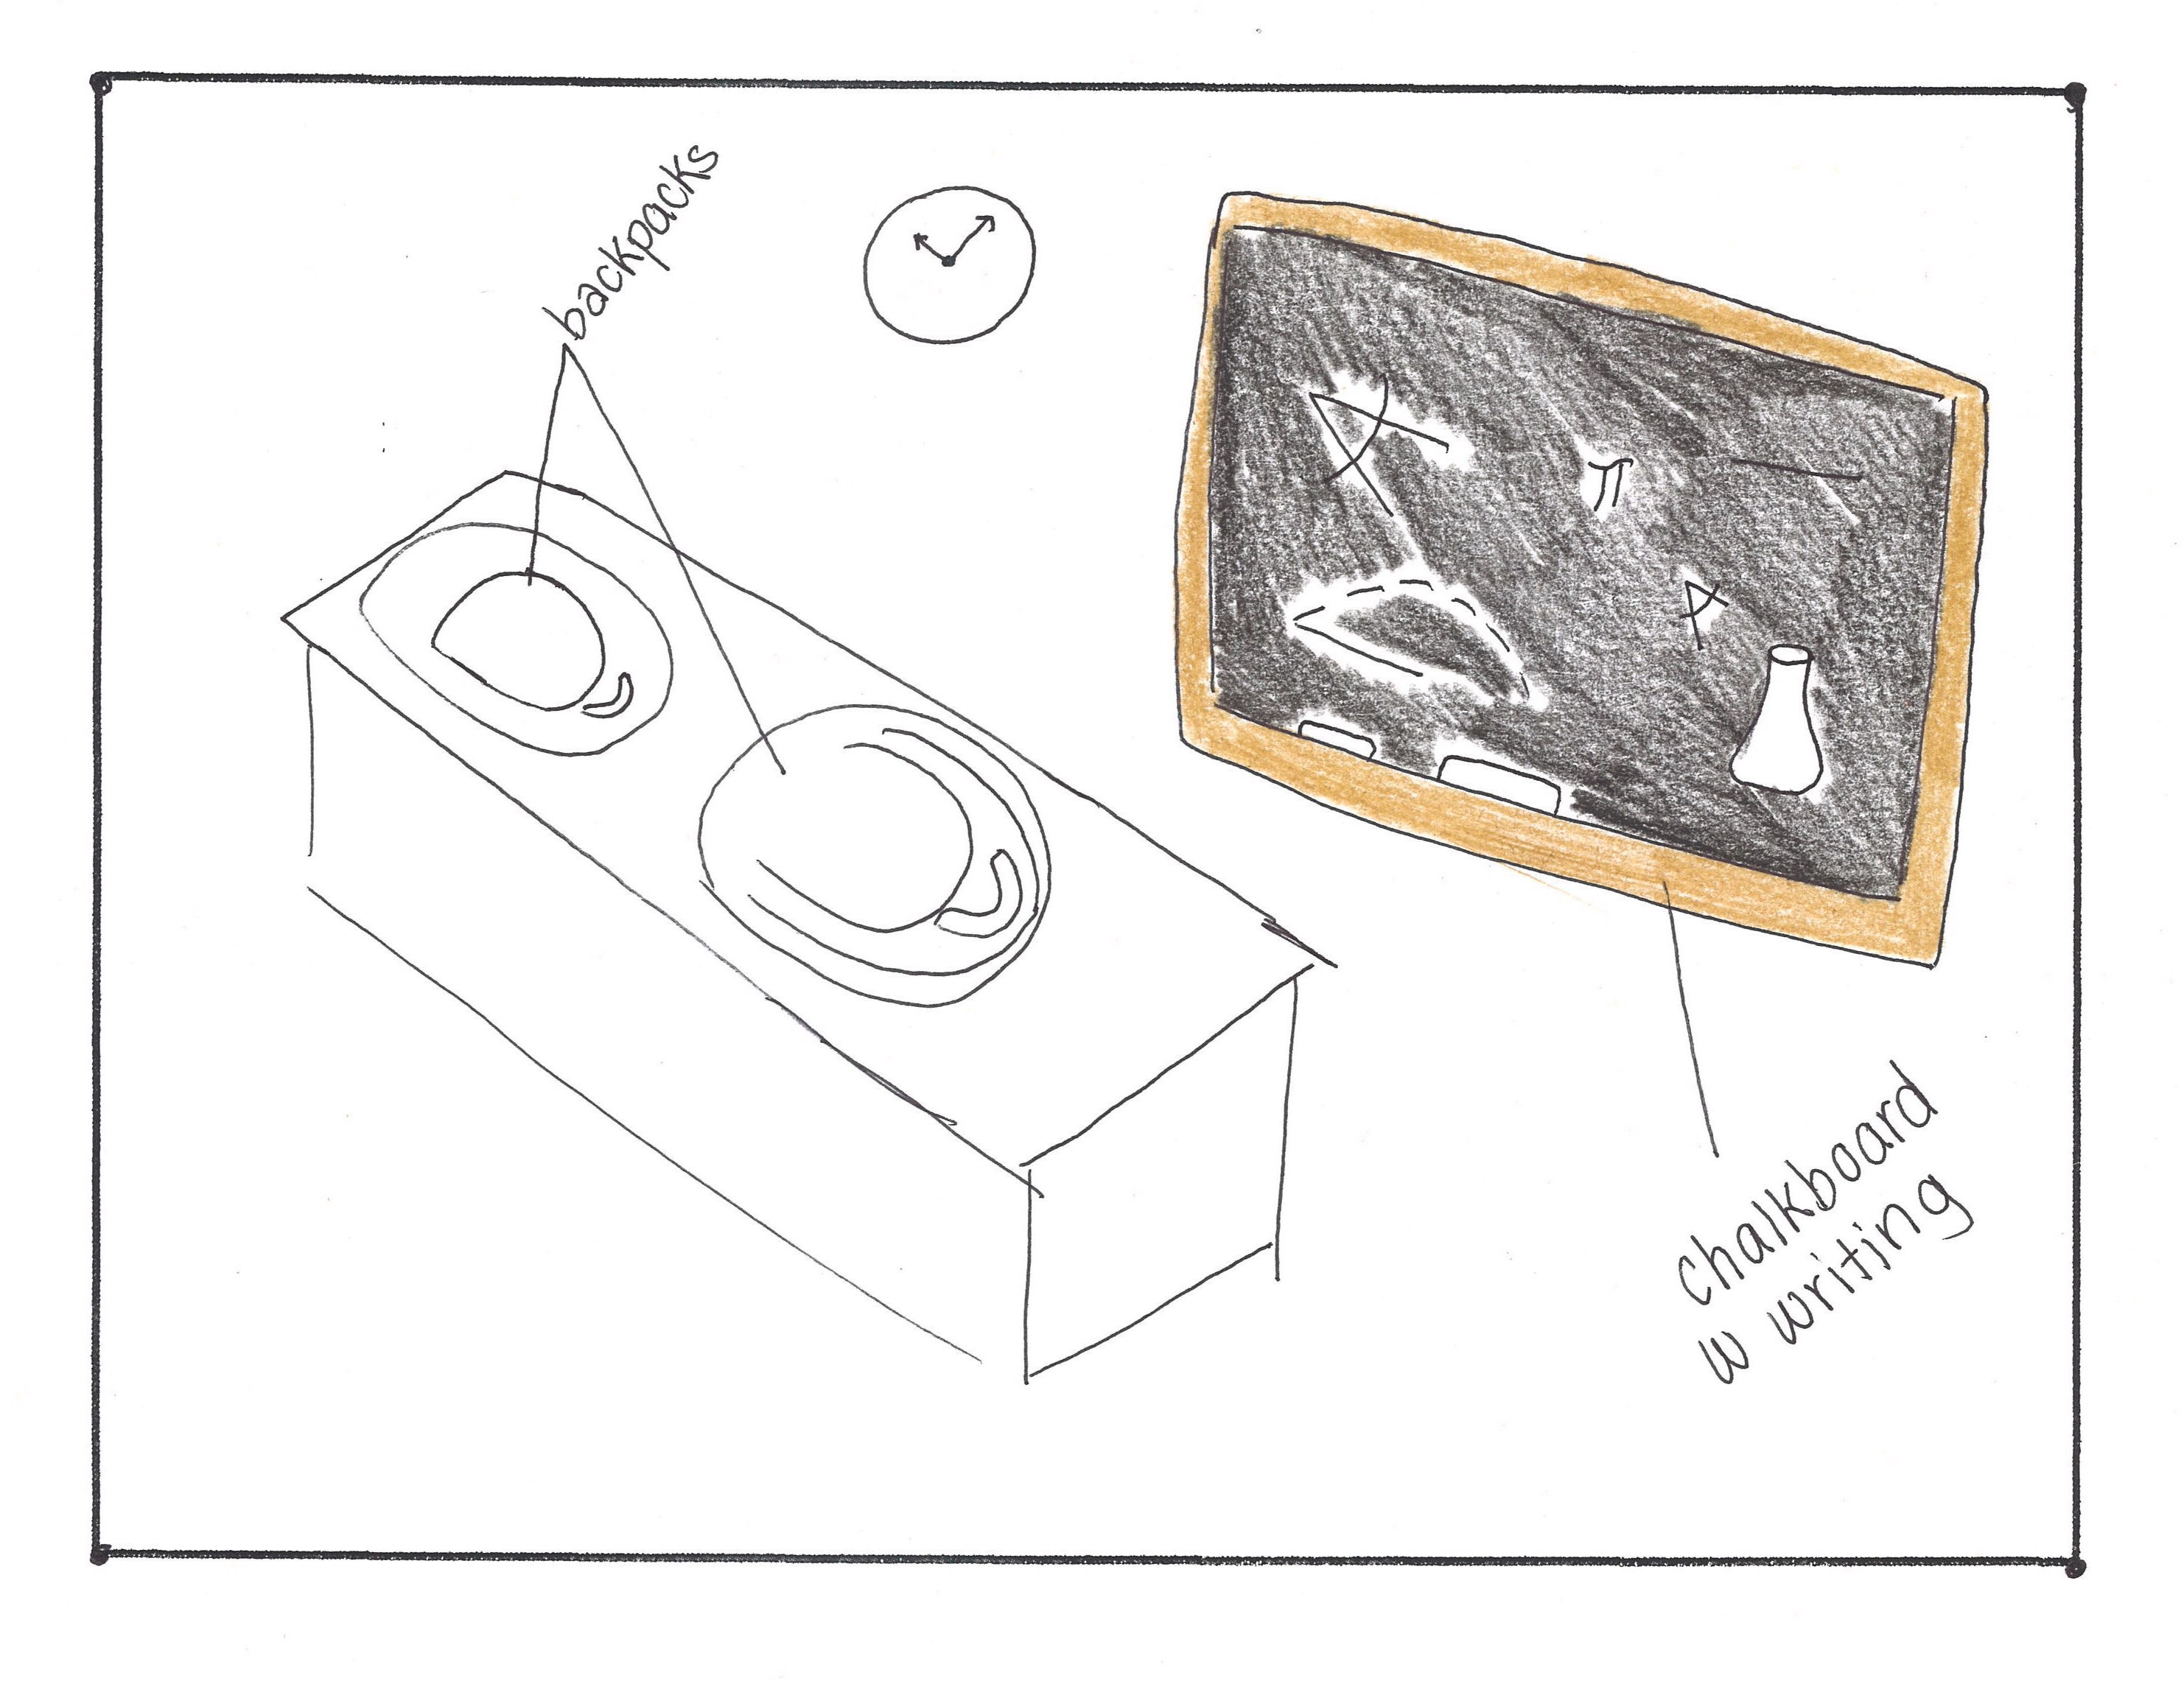 backpacks
π
chalkboard
w writing